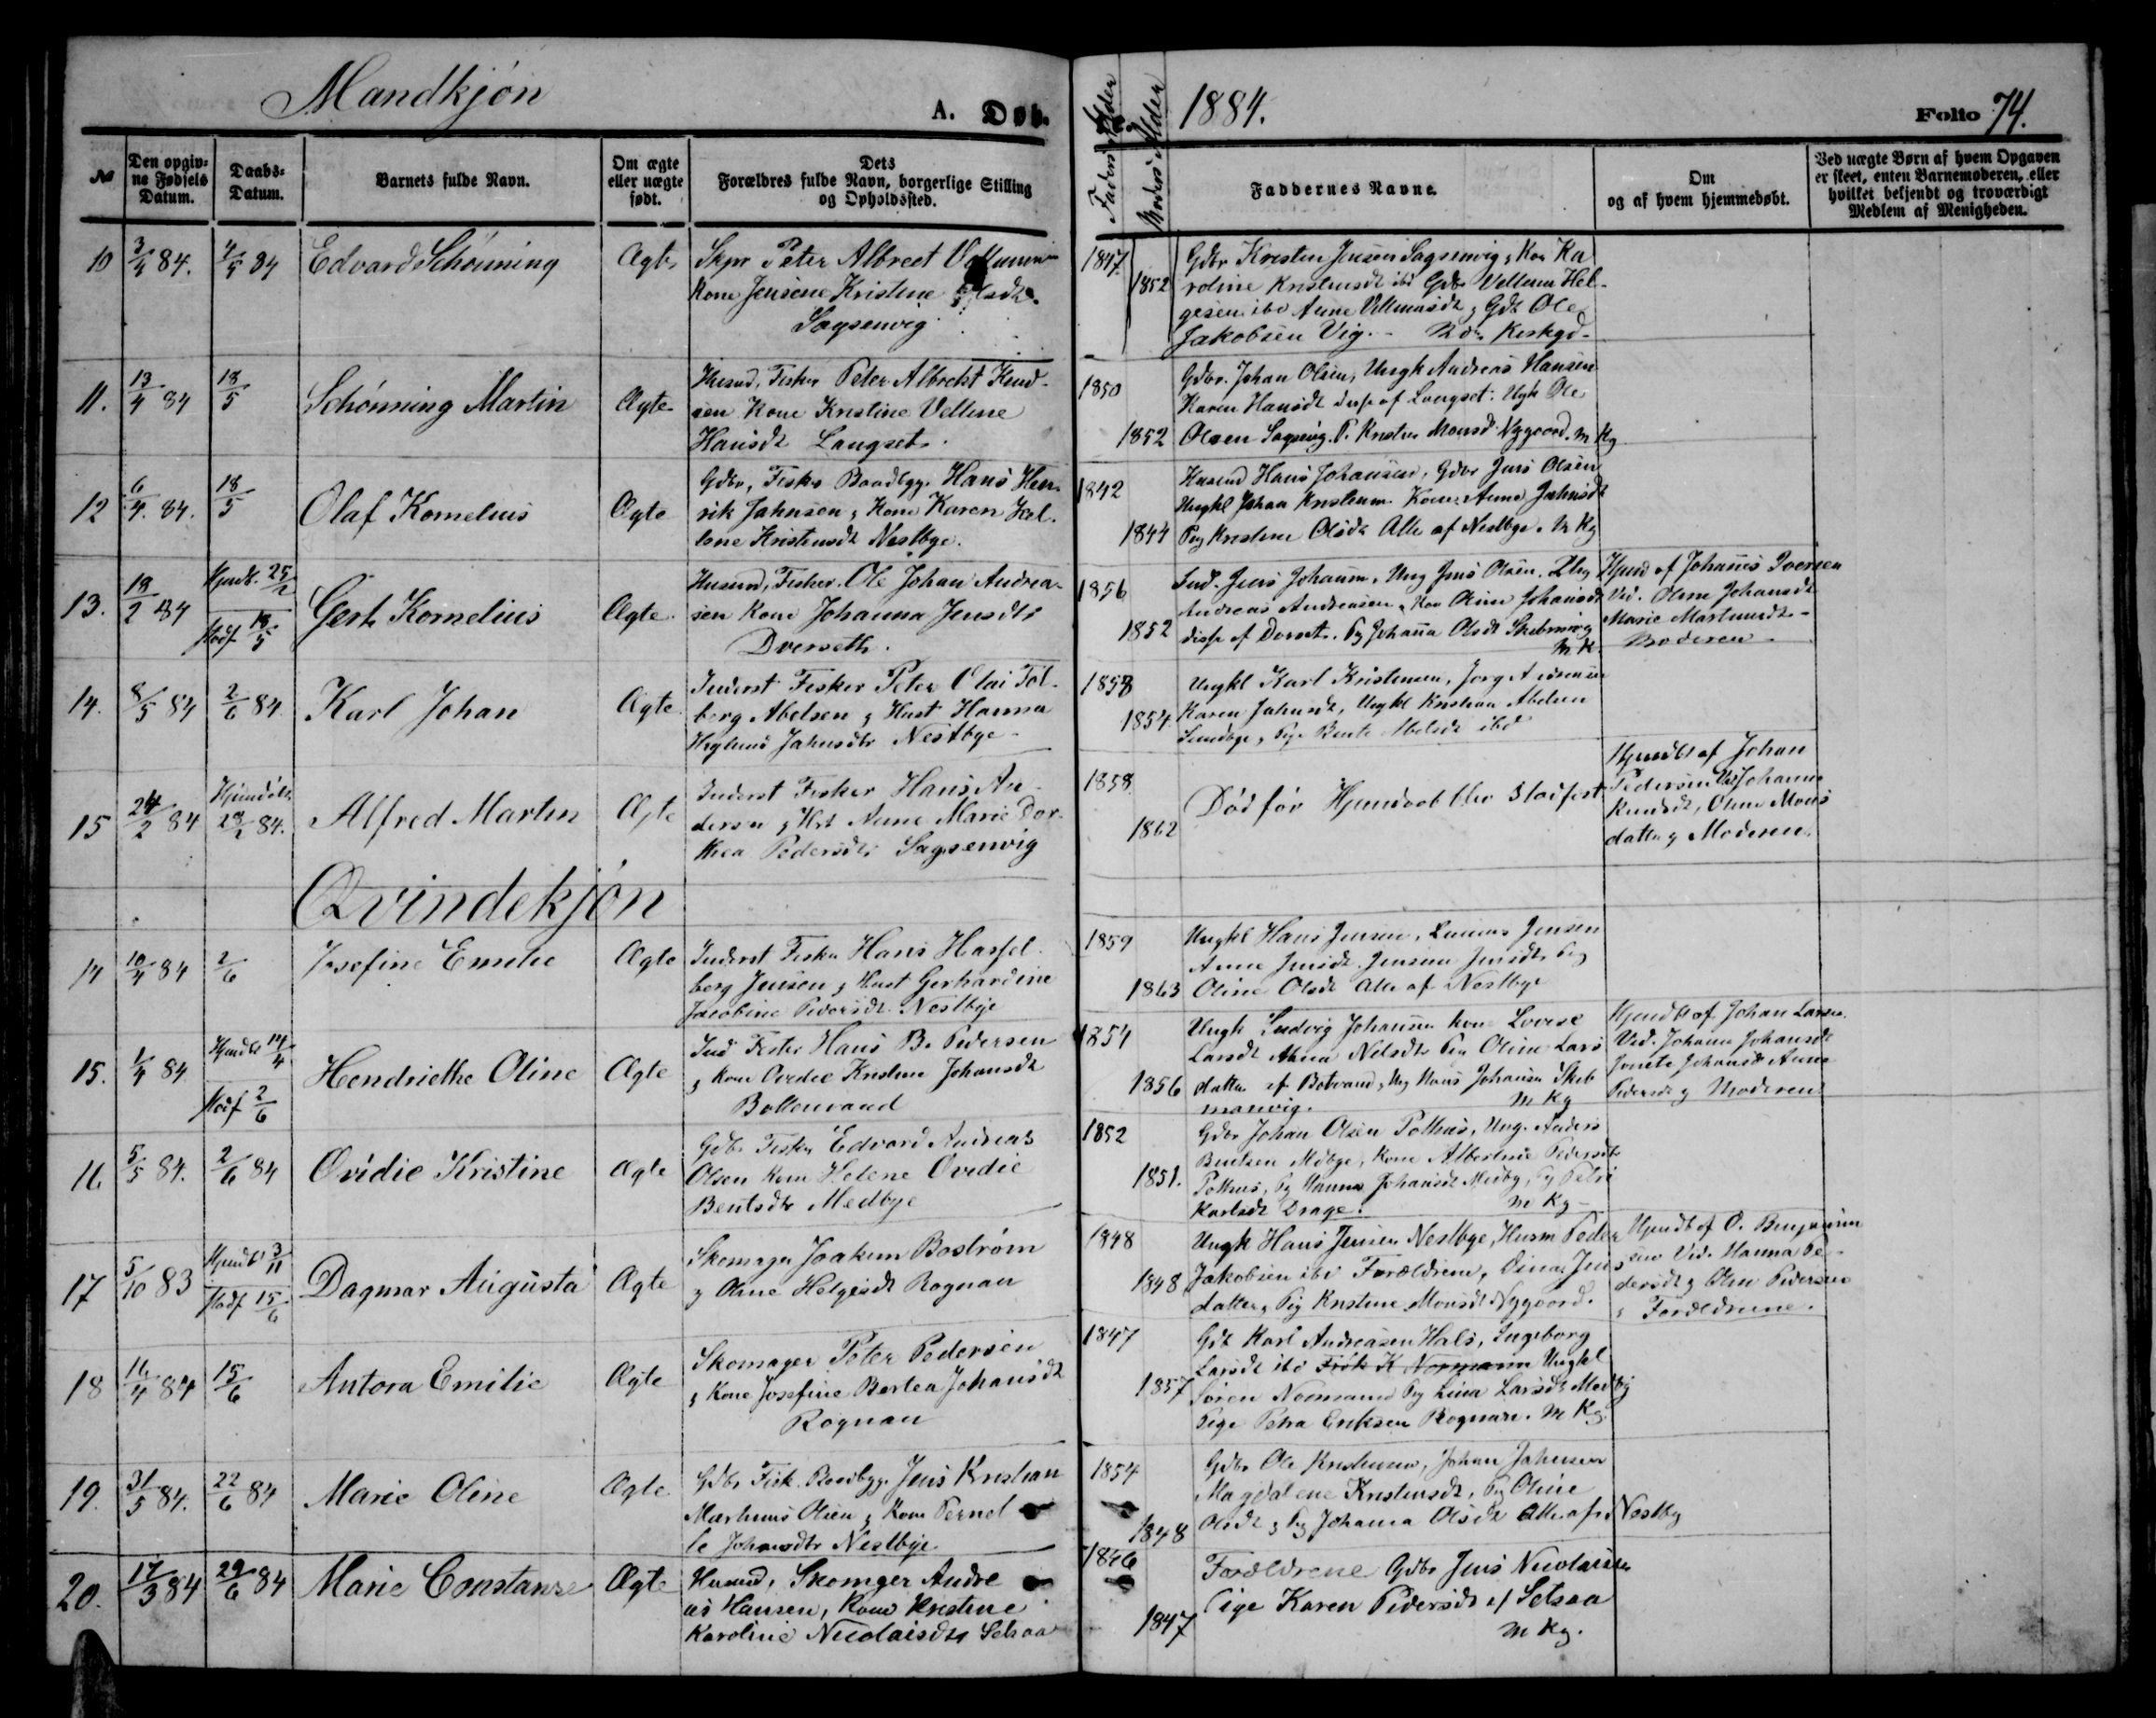 Mandkjón
A. Døb.
Faders Alder
Moders Alder
1884.
Folio 74.
No
Den opgiv-
ne Fødsels
Datum.
Daabs-
Datum.
Barnets fulde Navn.
Om ægte
eller uægte
født.
Dets
Forældres fulde Navn, borgerlige Stilling
og Opholdssted.
Faddernes Navne.
Om
og af hvem hjemmedøbt.
Ved uægte Børn af hvem Opgaven
er skeet, enten Barnemoderen, eller
hvilket bekjendt og troværdigt
Medlem af Menigheden.
10
3/4 84.
4/5 84
Edvard Schönning
Ægte
Peter Albreet
Kone Jensene Kristine
Sagsenvig
1847
1852
Gdbr Kristen Jensen Sagsenvig, Kon Ka
roline ibd Gdbr Vellum Hel-
gesen ibd Anne
Jakobsen Vig.
11.
13/4 84
18/5
Schönning Martin
Ægte
Husmd, Fisker Peter Albrekt Knud-
sen Kone Kristine Vellene
Hansdt Langset.
1850
1852
Gdbr. Johan Olsen, Ungk Andreas Hansen
Karen Hansdt disse af Langset. Ungk Ole
Olsen Nygaard. M Kg
12
6/4. 84.
18/5
Olaf Kornelius
Ægte
Gdbr, Fisker Baadbyg. Hans Hen-
rik Jahnsen, Kone Karen Hel-
ene Kristensdt Nestbye.
1842
1844
Husmd Hans Johansen, Gdbr Jens Olsen
Ungkl Johan Kone Anne Jahnsdt
Pig Kristine Olsdt Alle af Nestbye. M Kg
13.
18/2 84
Hjmdt. 25/2
Stadf 18/5
Gert Kornelius
Ægte
Husmd, Fisker. Ole Johan Andrea-
sen Kone Johanna Jensdtr
Dverseth.
1856
1852
Ind. Jens Johansen, Ung Jens Olsen.
Andreas Andreassen, Kon Oline Johansdt
disse af Dverset. Pg Johanna Olsdt
M K.
Hjmd af Johannes Iversen
Ved. Oline Johansdt
Marie Martinusdt
Moderen
14.
8/5 84
2/6 84
Karl Johan
Ægte
Inderst Fisker Peter Olai Fol-
berg Abelsen, Hust Hanna
Jahnsdtr Nestbye
1858
1854
Ungkl Karl Kristensen, Andreasen
Karen Jahnsdt, Ungkl Kristian Abelsen
Pige Bente Abelsdt ibd
15
24/2 84
Hjemdöbt
84.
Alfred Martin
Ægte
Inderst Fisker Hans An-
dersen, Hust Anne Marie Dor-
thea Pedersdt. Sagsenvig
1858
1862
Död för Hjemdaab blev stadfæst
Hjemdbt af Johan
Pedersen Ved Johanna
Knudsdt, Oline Mons
datter, Moderen.
Qvindekjön
14
10/4 84
2/6
Josefine Emilie
Ægte
Inderst Fisker Hans Hassel-
berg Jensen, Hust Gerhardine
Jacobine Pedersdt. Nestbye
1859
1863
Ungkl Hans Jensen, Jensen
Anne Jensdt. Jensine Jensdt. Pig
Oline Olsdt Alle af Nestbye
15.
1/4 84
Hjmdbt 14/4
Stadf 2/6
Hendriethe Oline
Ægte
Ind Fisker Hans B. Pedersen
, Kone Ovedie Kristine Johansdt
Bottenvand
1854
1856
Ungk Ludvig Johansen Kone Lovise
Larsdt Anna Nilsdtr Pig Oline Lars
datter af Botvand, Ung Hans Johansen Skeb
manvig. M Kg
Hjmdbt af Johan Larsen.
Ved. Johanna Johansdt
Johansdt Anne
Pedersdt, Moderen
16
5/5 84.
2/6 84
Ovidie Kristine
Ægte
Gdbr Fisker Edvard Andreas
Olsen Kone Helene Ovedie
Bentsdtr Medbye
1852
1851.
Gdbr Johan Olsen Pothus, Ung. Anders
Bentsen Medbye, Kone Albertine Pedersdtr
Pothus, Pg Hanna Johansdt Medby, Pg Petri
Karlsdt Drage. M Kg
17
5/10 83
Hjmdbt 3/11
Stadf 15/6
Dagmar Augusta
Ægte
Skomager Joakim Boström
, Oline Helgesdt Rognan
1848
1848
Ungk Hans Jensen Nestbye, Husm Peder
Jakobsen ibd Forældrene, Dina Jens
datter, Pig Kristine Monsdt Nygaard.
Hjmdbt af O. Benjamin
sen Ved. Hanna Pe-
dersdt, Oline Pedersen
, Forældrene.
18
16/4 84
15/6
Antora Emilie
Ægte
Skomager Peter Pedersen
, Kone Josefine Bertea Johansdt
Rognan
1847
1857
Gdb Karl Andreasen Hals, Ingeborg
Larsdt ibd Fisk K Normann Ungkl
Sören Normann Pig Lina Larsdt Medby
Pige Petra Eriksen Rognan. M Kg.
19.
31/5 84.
22/6 84
Marie Oline
Ægte
Gdbr Fisk. Baadbyg. Jens Kristian
Marhuus Olsen, Kone Pernel-
le Johansdtr Nestbye
1854
1848
Gdbr Ole Kristensen, Johan Jahnsen
Magdalene Kristensdt, Pg Oline
Olsdt, Pg Johanna Olsdt Alle af Nestby
20.
17/3 84
29/6 84
Marie Constanse
Ægte
Husmd, Skomger Andre
as Hansen, Kone Kristine
Karoline Nicolaisdtr Setsaa
1846
1847
Forældrene Gdbr Jens Nicolaisen
Pige Karen Pedersdt af Setsaa
M Kg.